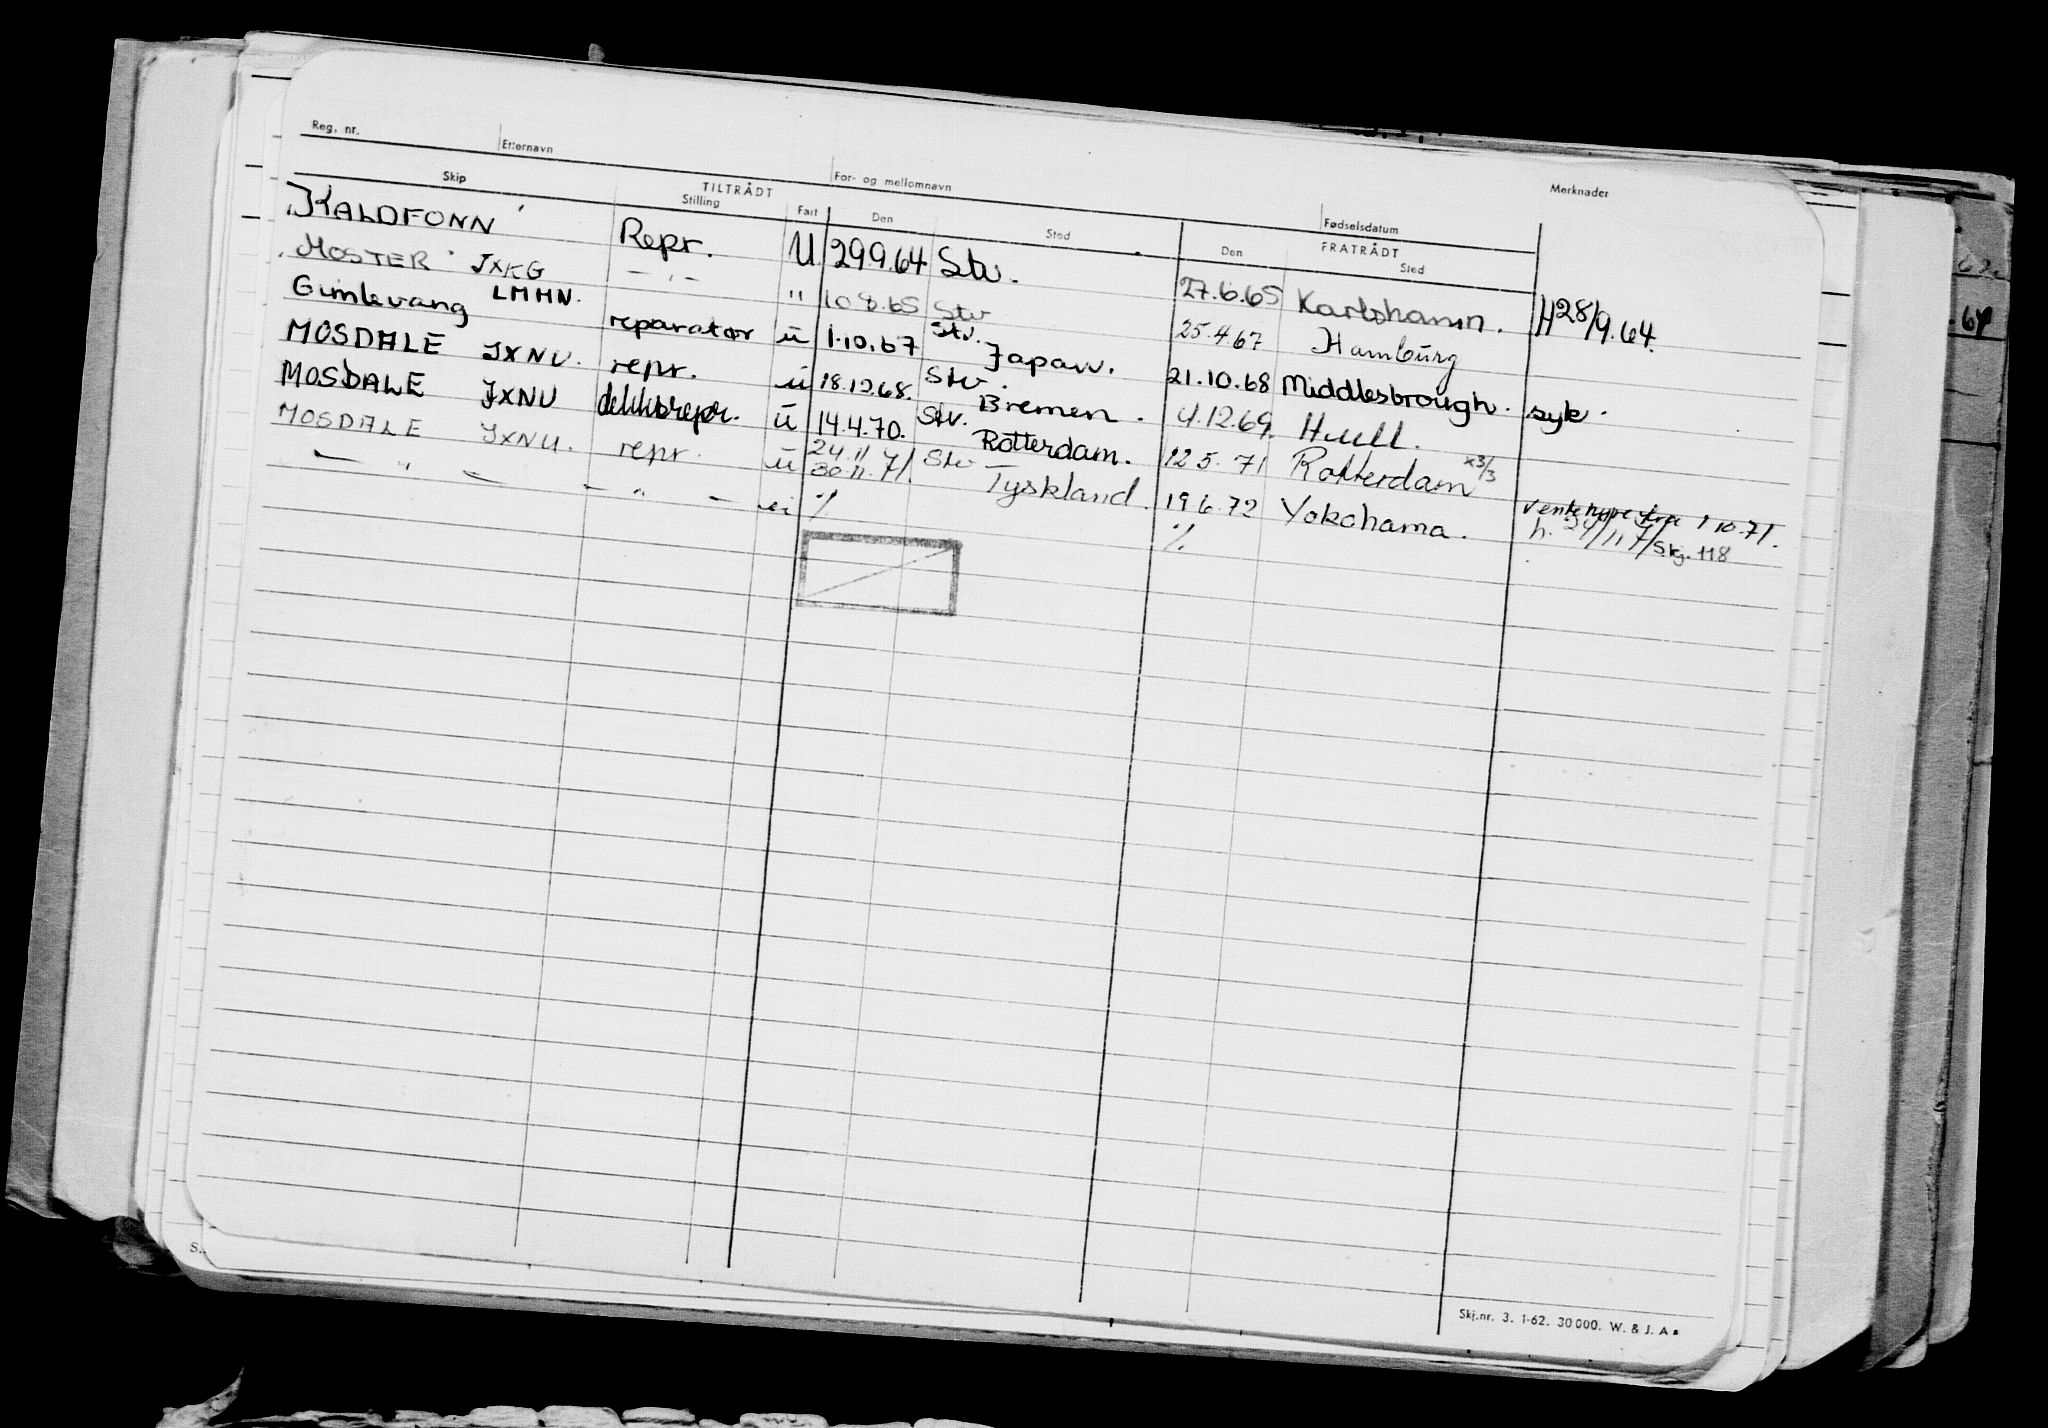 Reg. nr. Etternavn For- og mellomnavn Fødselsdatum Merknader
Skip TILTRÅDT Stilling Fart Den Sted FRATRÅDT Den Sted
"KALDFONN" Repr. U 29.9.64 Stv. 27.6.65 Karlshamn. H28/9.64.
"MOSTER" JXKG — " — " 10.8.65 Stv 25.4.67 Hamburg
Gimlevang LMHN. reparatør u 1.10.67 Stv. Japan. 21.10.68 Middlesbrough. syk.
MOSDALE JXNU. repr. u 18.12.68. Stv. Bremen. 4.12.69. Hull.
MOSDALE JXNU dekksrepr. u 14.4.70. Stv. Rotterdam. 12.5.71 Rotterdam x3/3
MOSDALE JXNU. repr. u 24.11 30.11.71. Stv Tyskland. 19.6.72 Yokohama. Ventehyre fra 1.10.71.
— " — — " — u % % h. 24/11.71 Skj. 118
Skj.nr. 3. 1-62. 30 000. W. & J. A
S.